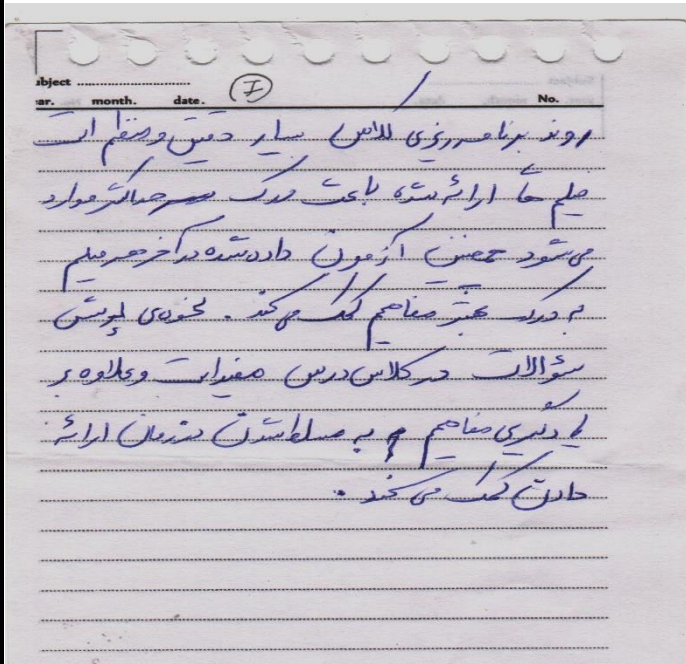 ubject
ear. month. date. I No.
روند برنامه ریزی کلاس بسیار دقیق و منظم است
فیلم ها ارائه شده باعث درک حداکثر موارد
می شود همچنین آزمون داده شده در آخر هر فیلم
به درک بهتر مفاهیم کمک می کند . نحوه‌ی پرسش
سؤالات در کلاس درس مفید است و علاوه بر
یادگیری مفاهیم به مسلط شدن در زمان ارائه
دادن کمک می کند .